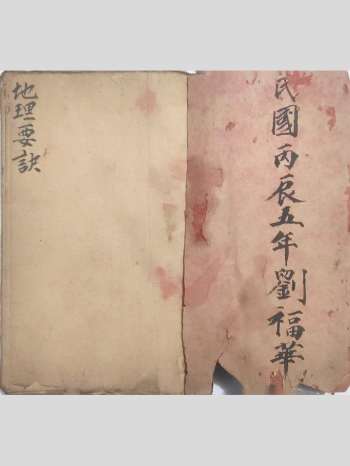 民國丙辰五年劉福華
地理要訣